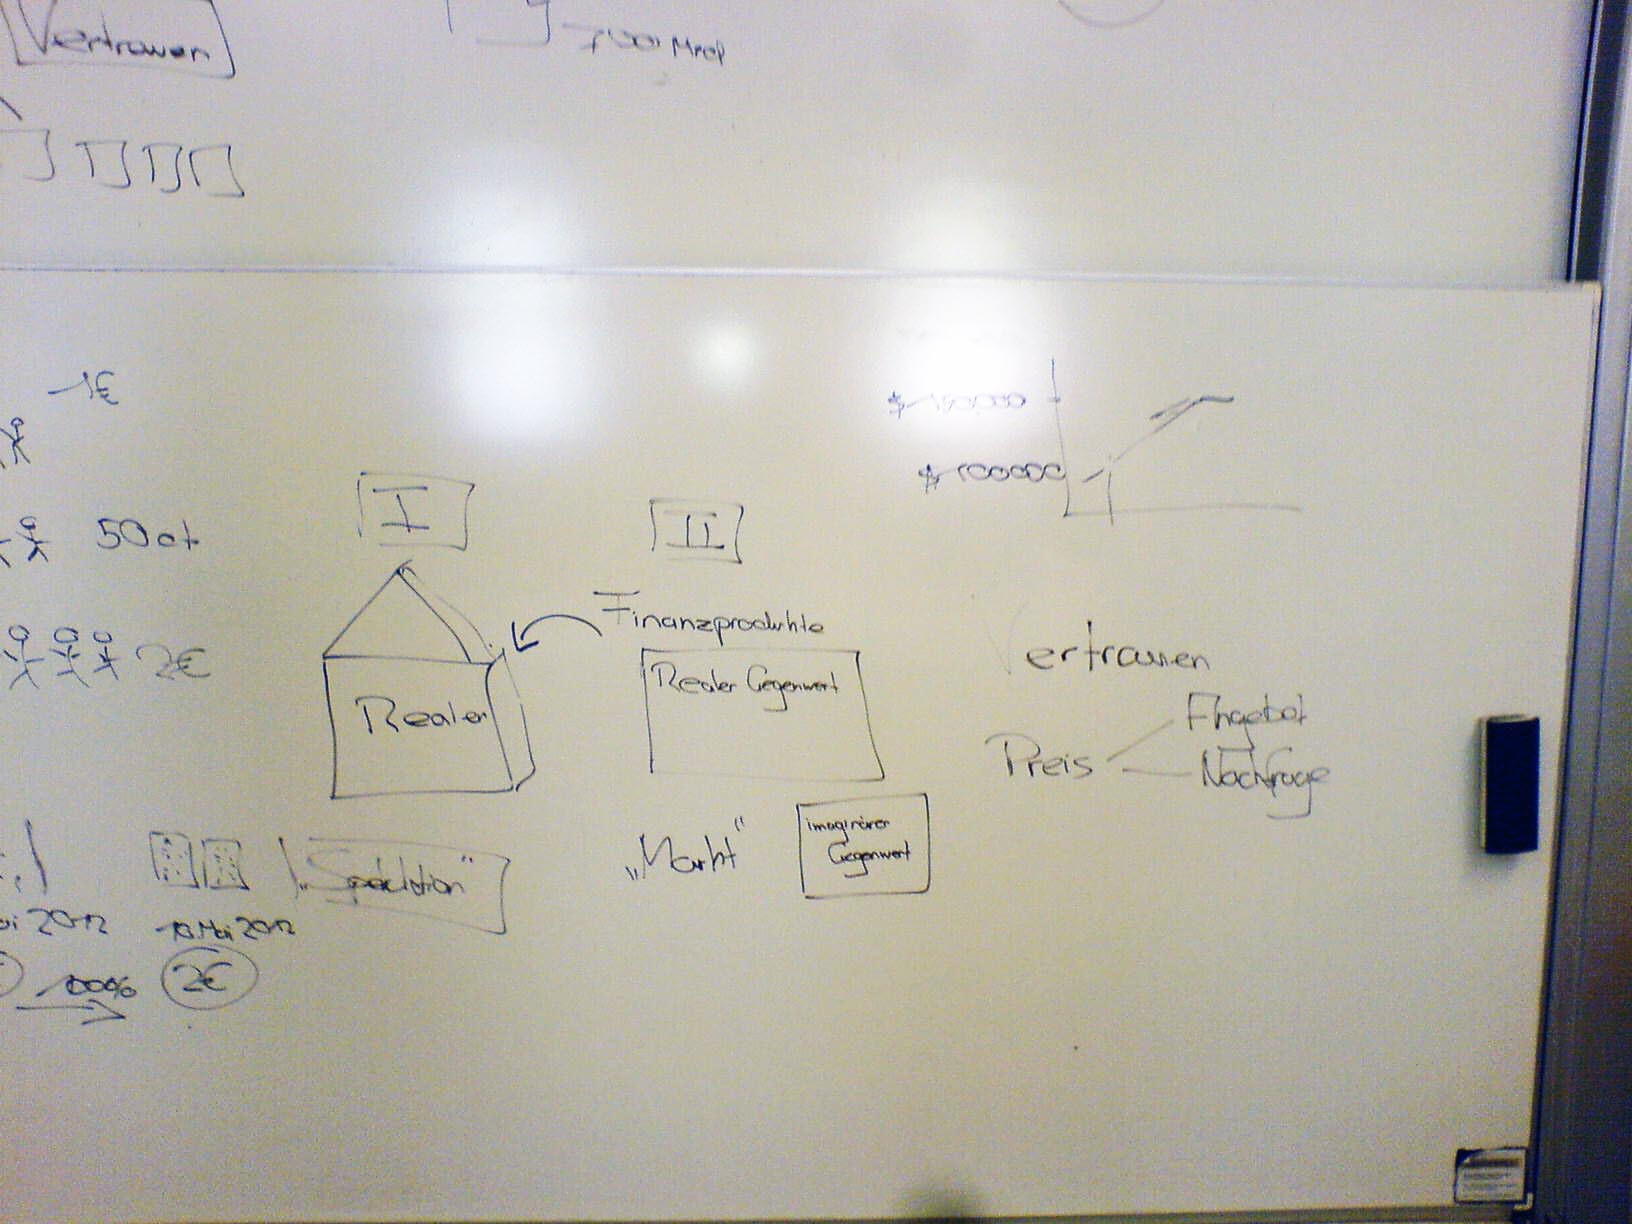 Vertrauen
700 Mrd
1€
50ct
2€
I
II
$ 150,000
$ 100000
Finanzprodukte
Realer
Realer Gegenwert
Vertrauen
Preis
Angebot
Nachfrage
„Spekulation"
„Markt"
imaginärer
Gegenwert
2012
10. Mai 2012
100%
2€